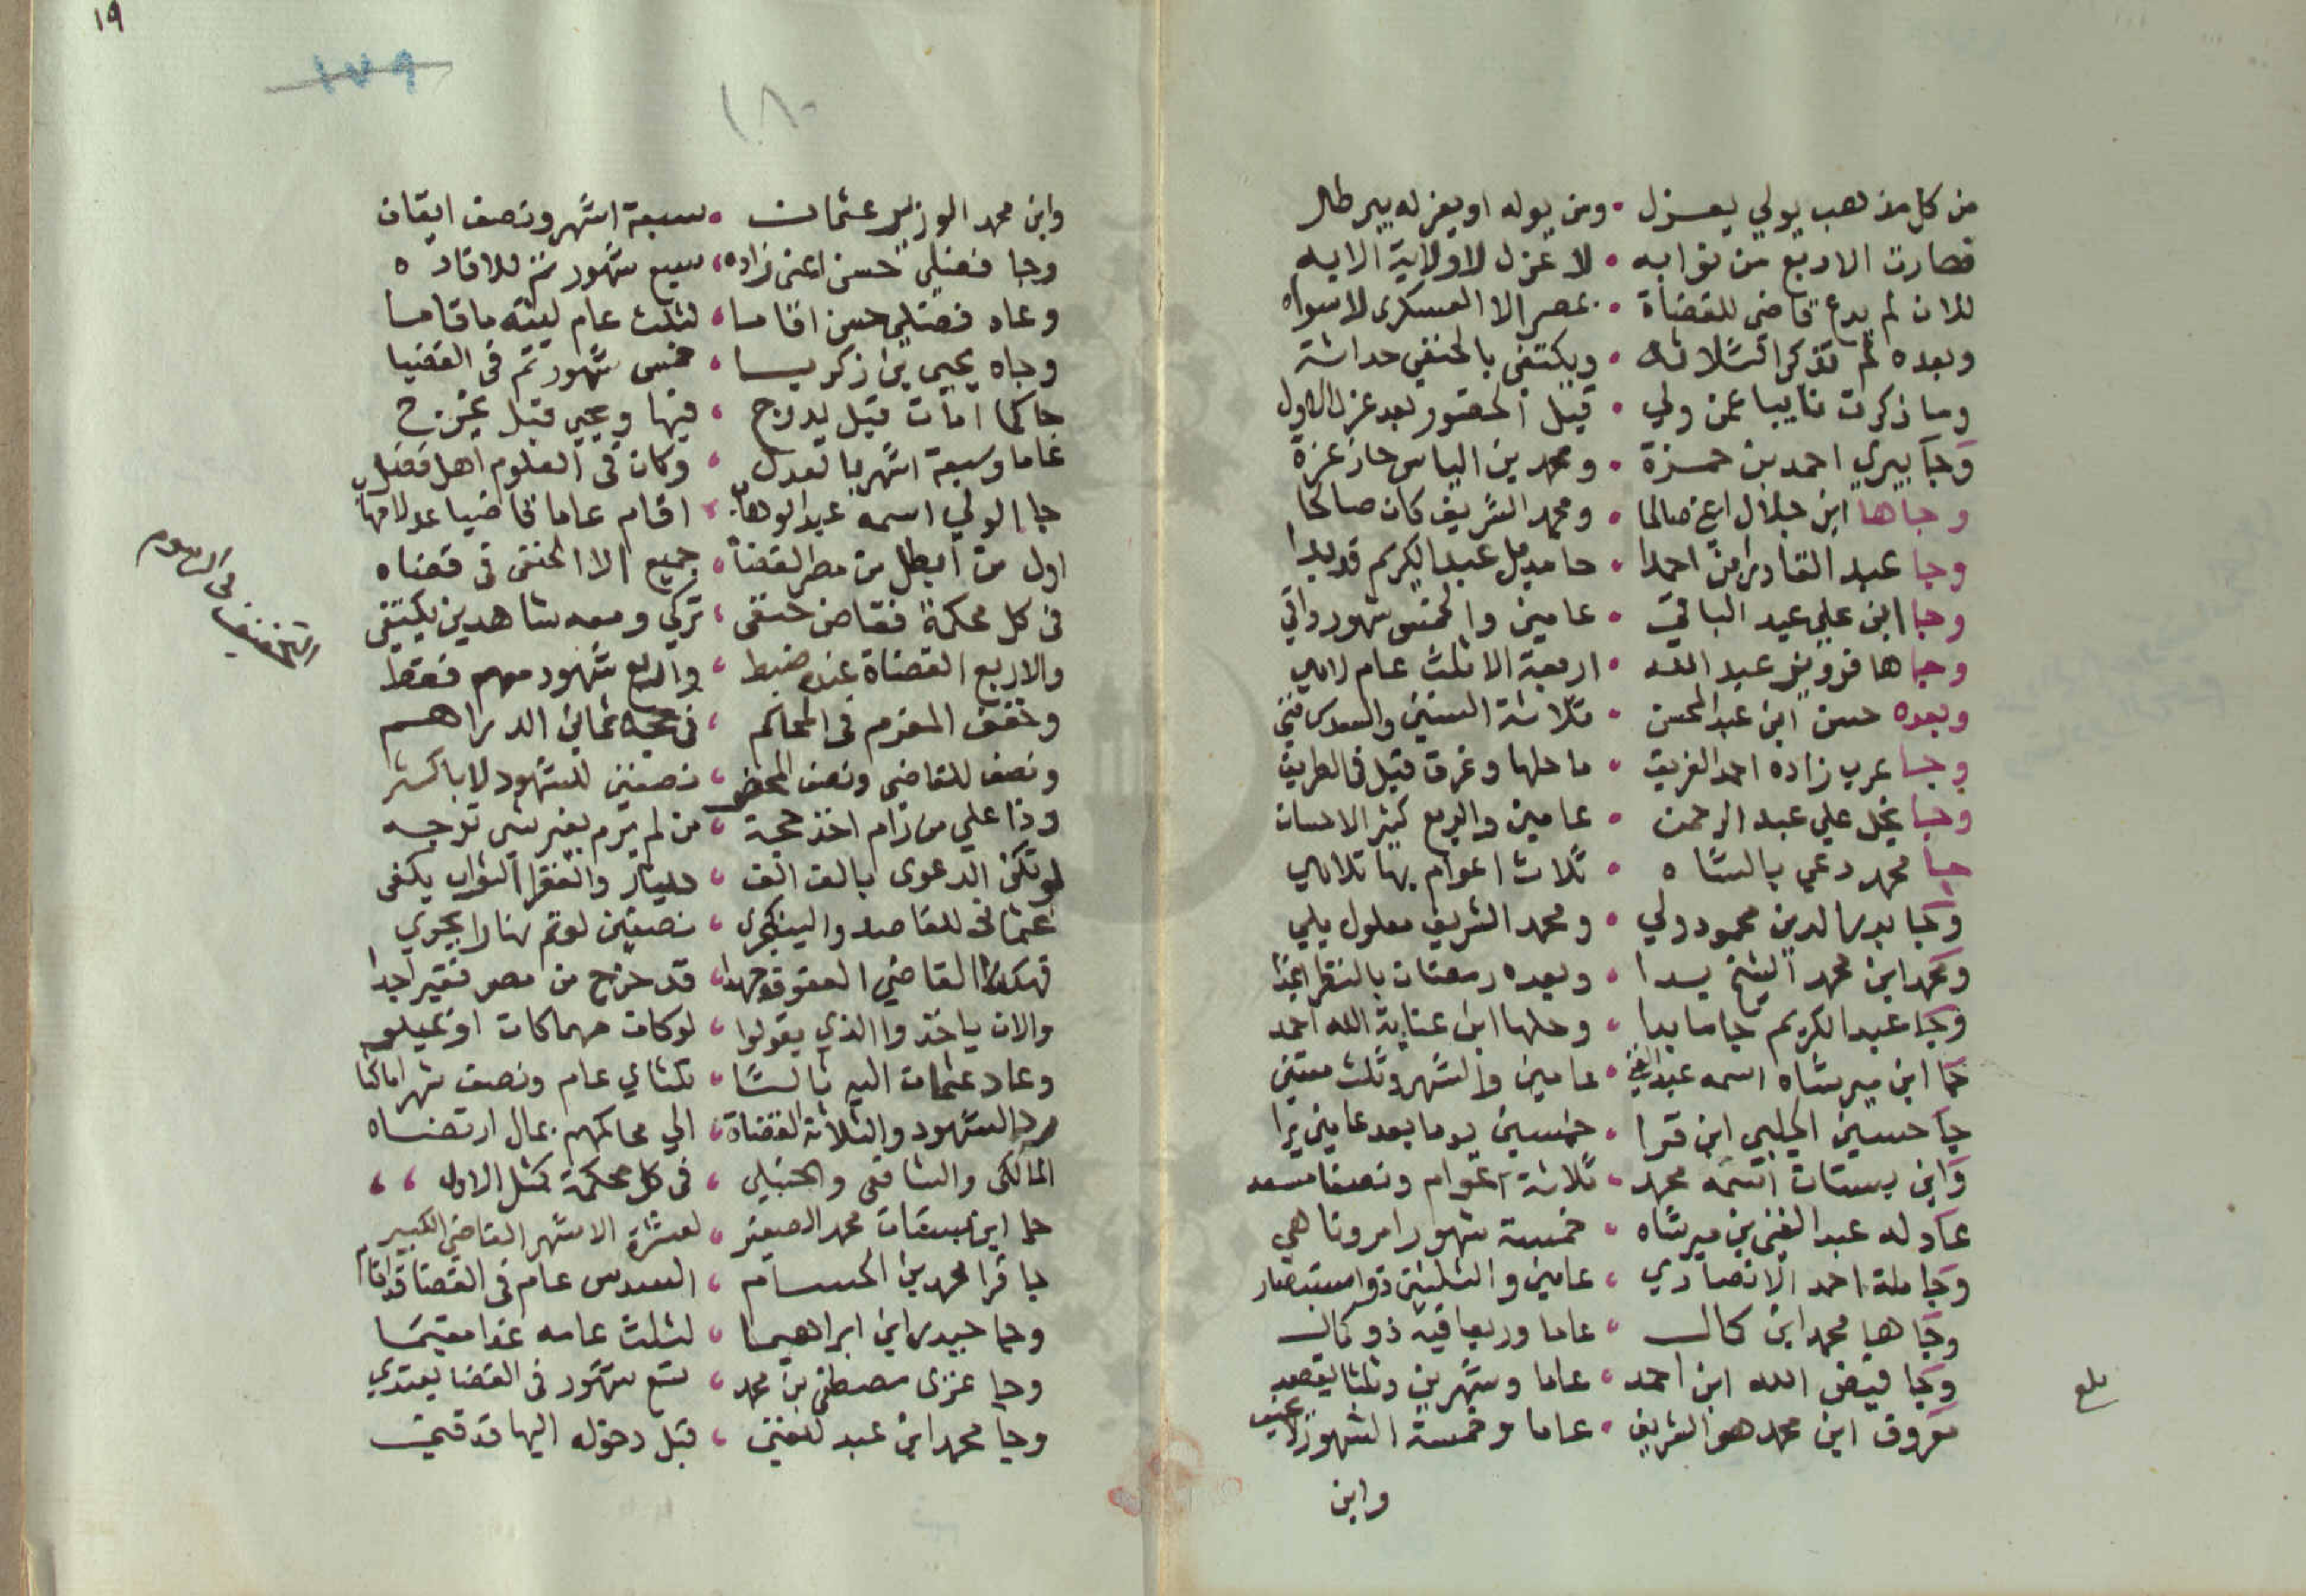 من كل مذهب يولي يعزل • ومن يوله او يعزله يبرطل
فصارت الاربع من نوابه • لا عزل لا ولاية الا به
للان لم يدع قاضي للقضاة • بمصر الا العسكري لا سواه
وبعده لم تذكر الثلاثه • ويكتفى بالحنفي حداثة
وما ذكرت نايبا عمن ولي • قبل الحضور بعد عزل الاول
وجا بيري احمد بن حمزة • ومحمد بن الياس حاز عزة
وجاها ابن جلال اعني صالحا • ومحمد الشريف كان صالحا
وجا عبد القادر ابن احمدا • حامد بل عبد الكريم قد بدا
وجا ابن علي عبد الباقي • عامين والخمس شهور واقي
وجاها قزويني عبد الله • اربعة الا ثلث عام
وبعده حسن ابن عبد المحسن • ثلاثة السنين والسدس
وجا عرب زاده احمد الغريق • ما حلها وغرق قبل في الطريق
وجا نجل علي عبد الرحمن • عامين والربع كثير الاحسان
جا محمد دعي بالشاه • ثلاث اعوام بها
وجا بدر الدين محمود ولي • ومحمد الشريف معلول يلي
ومحمد ابن محمد الشيخ بدا • وبعده رمضان بالنظر
وجا عبد الكريم جا ما بدا • وحلها ابن عناية الله احمد
كما ابن ميرشاه اسمه عبد الغني • عامين والشهر وثلث
جا حسين الجلبي ابن قرا • خمسين يوما بعد عامين
وابن بستان اسمه محمد • ثلاثة اعوام ونصفا
عاد له عبد الغني بن ميرشاه • خمسة شهور امر وناهي
وجا ملة احمد الانصاري • عامين والثلثين ذو استبصار
وجاها محمد ابن كمال • عاما وربعا فيه ذو كمال
وجا فيض الله ابن احمد • عاما وشهرين وثلثا
معروف ابن محمد هو الشريف • عاما وخمسة الشهور
وابن
بلغ
١٩
١٧٩
١٨٠
وابن محمد الوزير عثمان • سبعة اشهر ونصف
وجا فضيلي حسن اعني زاده • سبع شهور ثم
وعاد فضيلي حسن اقاما • لثلث عام ليته ما قاما
وجاه يحيى بن زكريا • خمس شهور تم في القضيا
حاكما امات قبل يدرج • فيها ويحيى قبل يخرج
عاما وسبعة اشهر بالعدل • وكان في العلوم اهل فضل
جا الولي اسمه عبد الوهاب • اقام عاما قاضيا
اول من ابطل من مصر القضاه • جميع الا الحنفي في قضاه
في كل محكمة فقاضي حنفي • تركي ومعه شاهدين يكتفي
والاربع القضاة عنده ضبط • واربع شهود معهم فقط
وخفف المغرم في المحاكم • في حجة ثماني الدراهم
ونصف للقاضي ونصف المحضر • نصفين للشهود لا باكثر
وذا علي من رام اخذ حجة • من لم يرم بغير شي توجه
لو تكن الدعوى بالف الف • دينار والفقرا الثواب يكفي
عثماني للقاصد والينكجري • نصفين لو تم نهارا يجري
فهكذا القاضي • قد خرج من مصر فقيرا جدا
والان ياخذوا الذي يقولوا • لو كان مهما كان
وعاد عثمان اليه ثالثا • ثلثاي عام ونصف شهر ماكثا
رد الشهود والثلاثة القضاة • الى محاكمهم بمال ارتضاه
المالكي والشافعي والحنبلي • في كل محكمة كمثل الاول
كما ابن بستان محمد الصغير • لعشرة الاشهر القاضي الكبير
جا قرا محمد بن الحسام • السدس عام في القضا قد اقام
وجا حيدر ابن ابراهيما • لثلث عامه غدا مقيما
وجا عزمى مصطفى بن محمد • تسع شهور في القضا يعتدي
وجا محمد ابن عبد الغني • قبل دخوله اليها قد
التخفيف في الرسوم